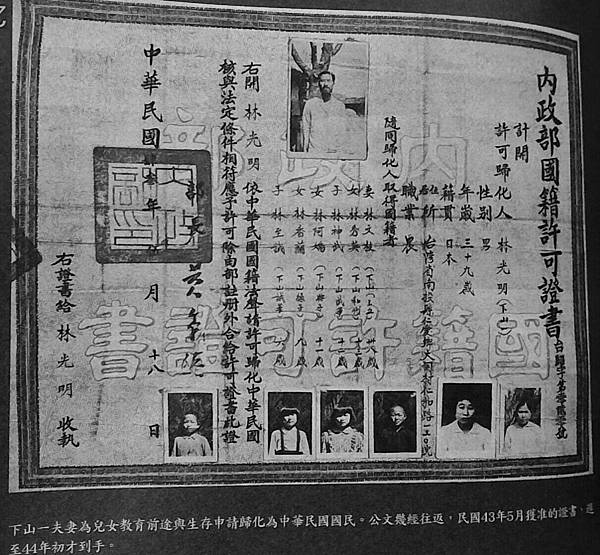 內政部國籍許可證書
計開
許可歸化人 林光明(下山一)
性別 男
年歲 三十九歲
籍貫 日本
住所 台灣省南投縣仁愛鄉大同村仁和路一二〇號
職業 農
隨同歸化人取得國籍者
妻 林文枝
女 林秀英
子 林神武
女 林阿
女 林香蘭
子 林至誠
右開 林光明 依中華民國國籍法聲請許可歸化中華民國
核與法定條件相符應予許可除由部註冊外合給許可證書此證
部長
中華民國
年
月十八日
右證書給 林光明 收執
內政部
國籍許可證書
下山一夫妻為兒女教育前途與生存申請歸化為中華民國國民。公文幾經往返,民國43年5月獲准的證書,遲
至44年初才到手。